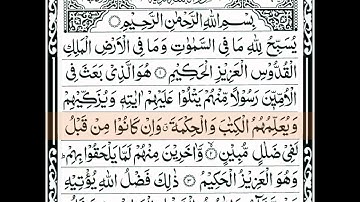 بِسْمِ اللّٰهِ الرَّحْمٰنِ الرَّحِيْمِ
يُسَبِّحُ لِلّٰهِ مَا فِى السَّمٰوٰتِ وَمَا فِى الْاَرْضِ الْمَلِكِ
الْقُدُّوْسِ الْعَزِيْزِ الْحَكِيْمِ ۝۱ هُوَ الَّذِىْ بَعَثَ فِى
الْاُمِّيّٖنَ رَسُوْلًا مِّنْهُمْ يَتْلُوْا عَلَيْهِمْ اٰيٰتِهٖ وَيُزَكِّيْهِمْ
وَيُعَلِّمُهُمُ الْكِتٰبَ وَالْحِكْمَةَ ۗ وَاِنْ كَانُوْا مِنْ قَبْلُ
لَفِىْ ضَلٰلٍ مُّبِيْنٍ ۝۲ وَّاٰخَرِيْنَ مِنْهُمْ لَمَّا يَلْحَقُوْا بِهِمْ ؕ
وَهُوَ الْعَزِيْزُ الْحَكِيْمُ ۝۳ ذٰلِكَ فَضْلُ اللّٰهِ يُؤْتِيْهِ